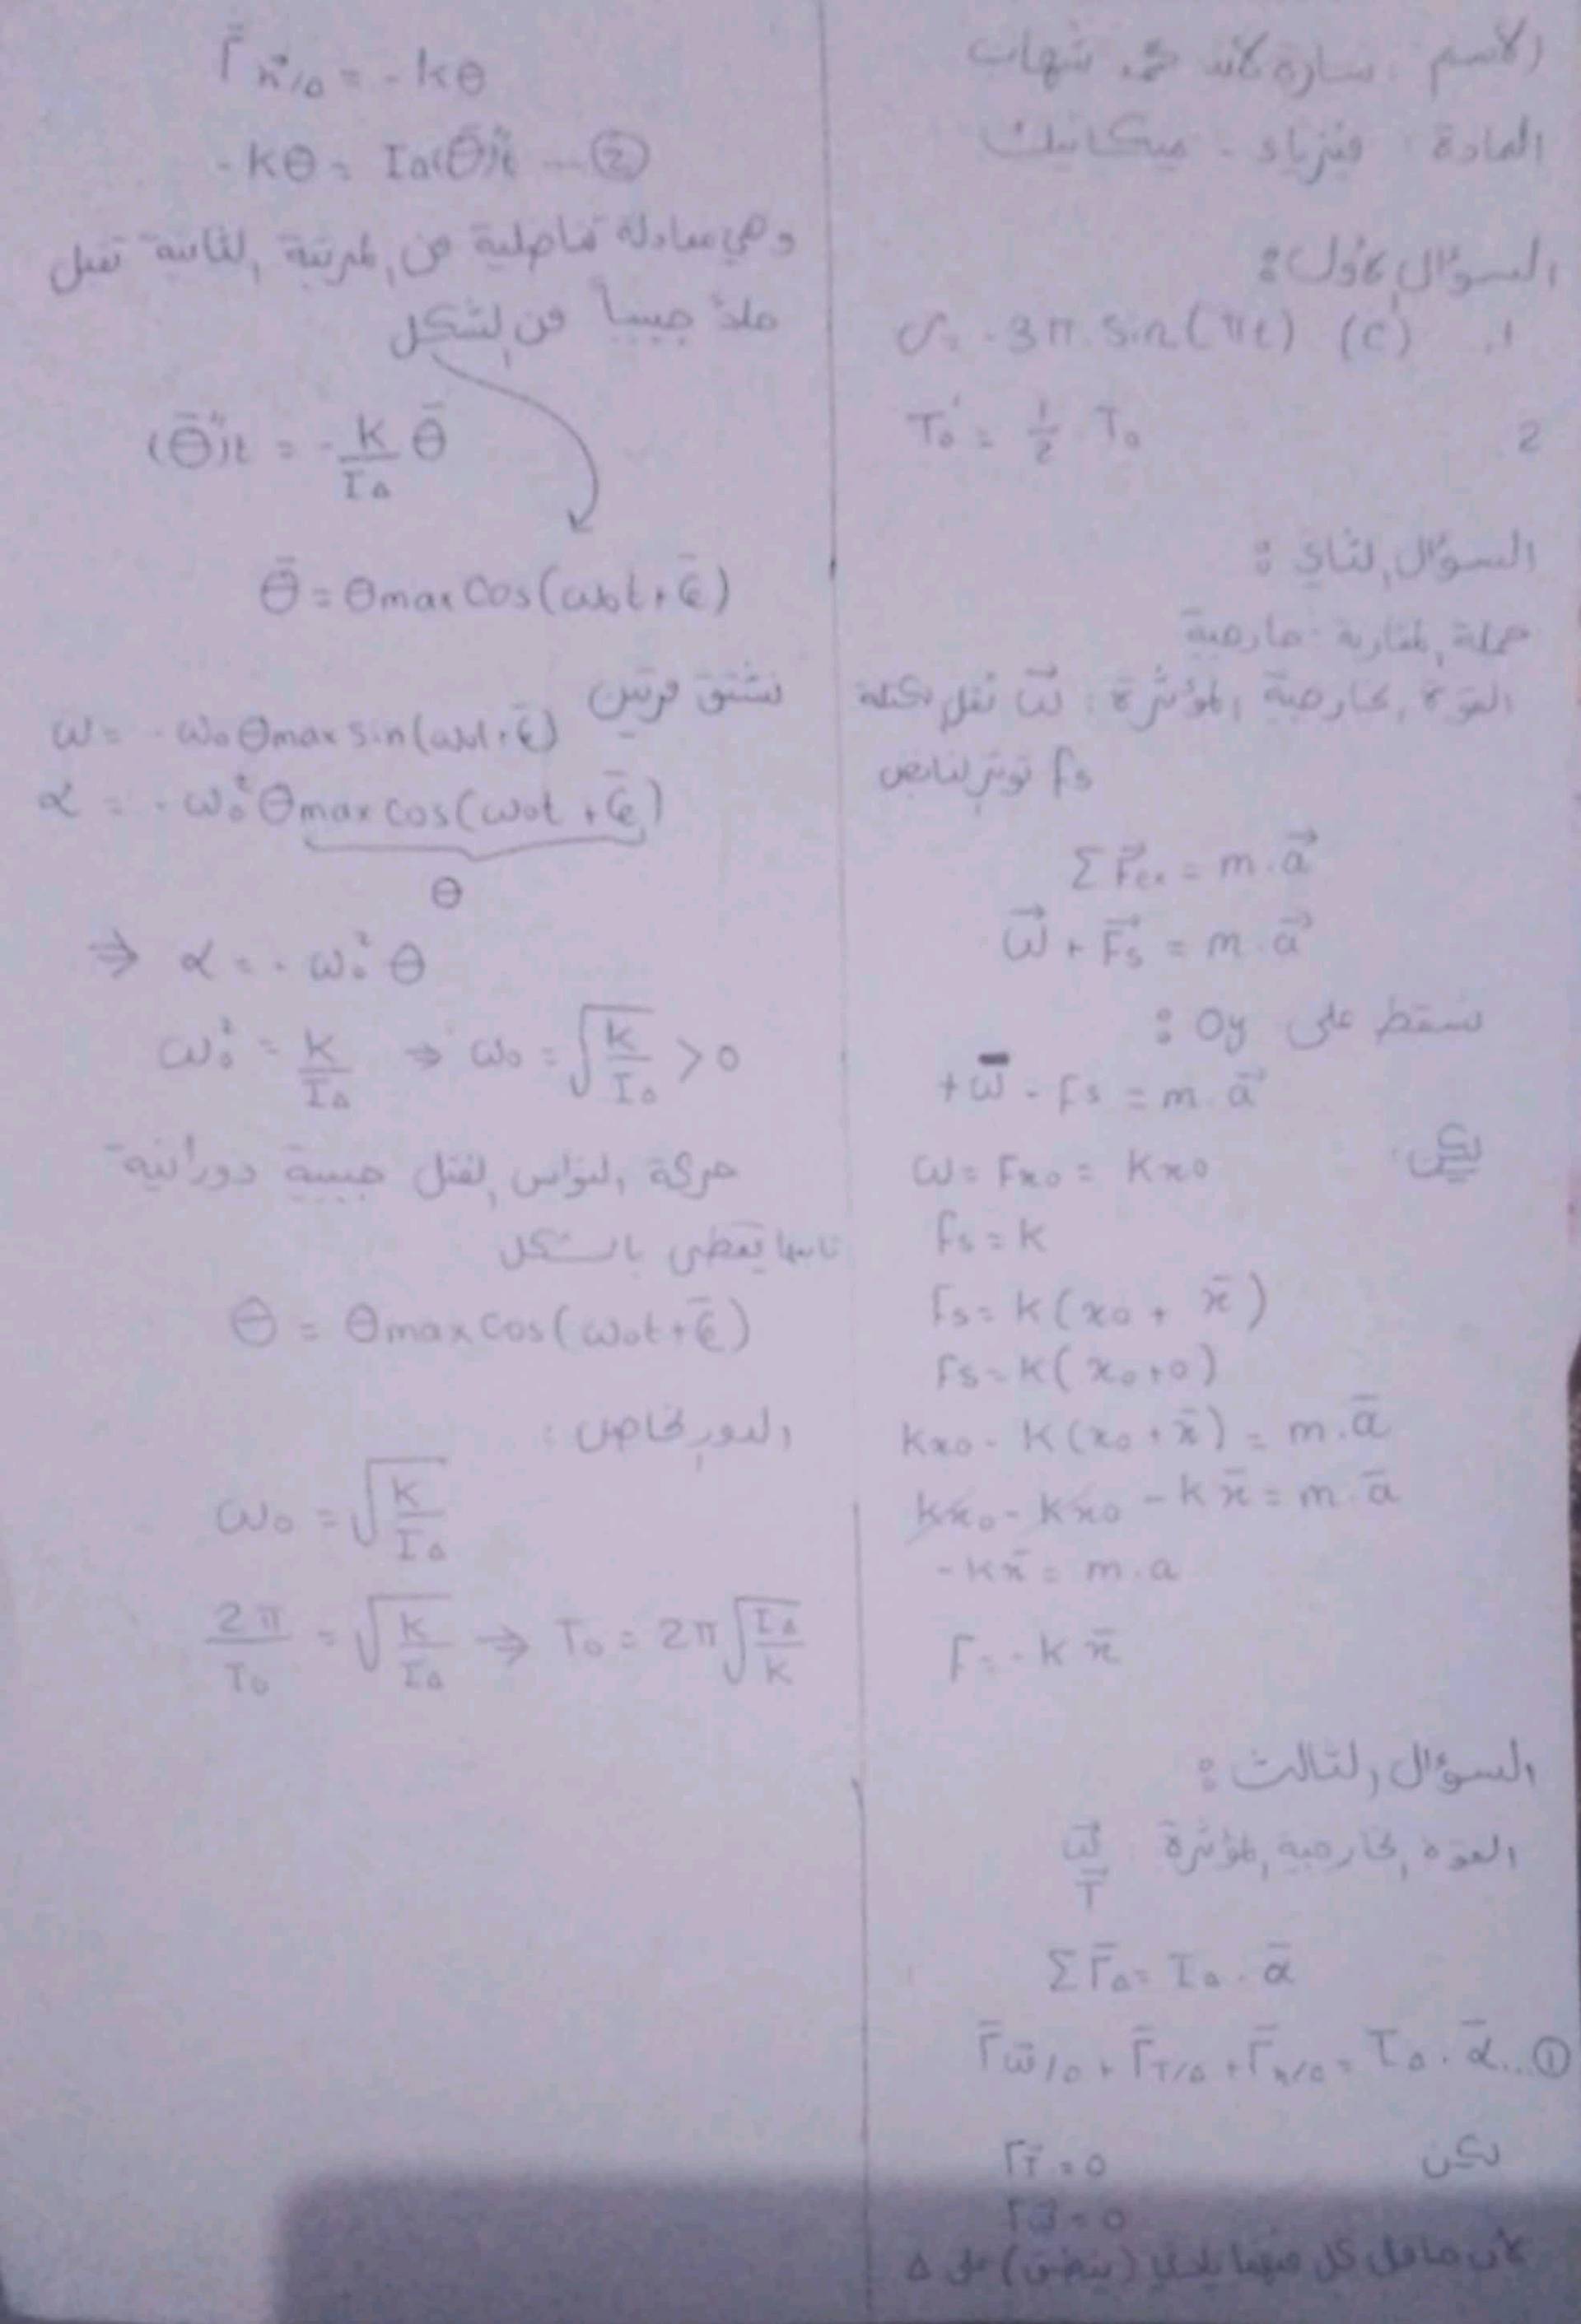 الاسم : سارة محمد شهاب
المادة : فيزياء - ميكانيك
السؤال الأول :
1. (c) v = -3π sin(πt)
2. T₀' = 1/2 . T₀
السؤال الثاني :
جملة المقارنة خارجية
القوة الخارجية المؤثرة : ω⃗ ثقل الكتلة
Fs توتر النابض
Σ F⃗ex = m . a⃗
ω⃗ + F⃗s = m . a⃗
نسقط على Oy :
+ω̄ - Fs = m . a⃗
لكن : ω = Fx₀ = Kx₀
Fs = K
Fs = K(x₀ + x̄)
Fs = K(x₀ + 0)
Kx₀ - K(x₀ + x̄) = m . ā
Kx₀ - Kx₀ - Kx̄ = m . ā
-Kx̄ = m . a
F = -K x̄
السؤال الثالث :
القوة الخارجية المؤثرة ω⃗
T⃗
Σ Γ̄Δ = IΔ . ᾱ
Γ̄ω̄/Δ + Γ̄T/Δ + Γ̄η/Δ = IΔ . ᾱ ... ①
لكن ΓT̄ = 0
Γω̄ = 0
لأن حامل كل منهما يلاقي (ينطبق) على Δ
Γ̄η⃗/Δ = -kθ
-kθ = IΔ(θ̄)''t — ②
وهي معادلة تفاضلية من المرتبة الثانية تقبل
حلاً جيبياً من الشكل
(θ̄)''t = -K/IΔ θ̄
θ̄ = θmax cos(ω₀t + φ̄)
نشتق مرتين
ω = -ω₀ θmax sin(ω₀t + φ̄)
α = -ω₀² θmax cos(ω₀t + φ̄)
θ
⇒ α = -ω₀² θ
ω₀² = K/IΔ ⇒ ω₀ = √(K/IΔ) > 0
حركة النواس الفتل جيبية دورانية
تابعها يعطى بالشكل
θ = θmax cos(ω₀t + φ̄)
الدور الخاص :
ω₀ = √(K/IΔ)
2π/T₀ = √(K/IΔ) ⇒ T₀ = 2π√(IΔ/K)